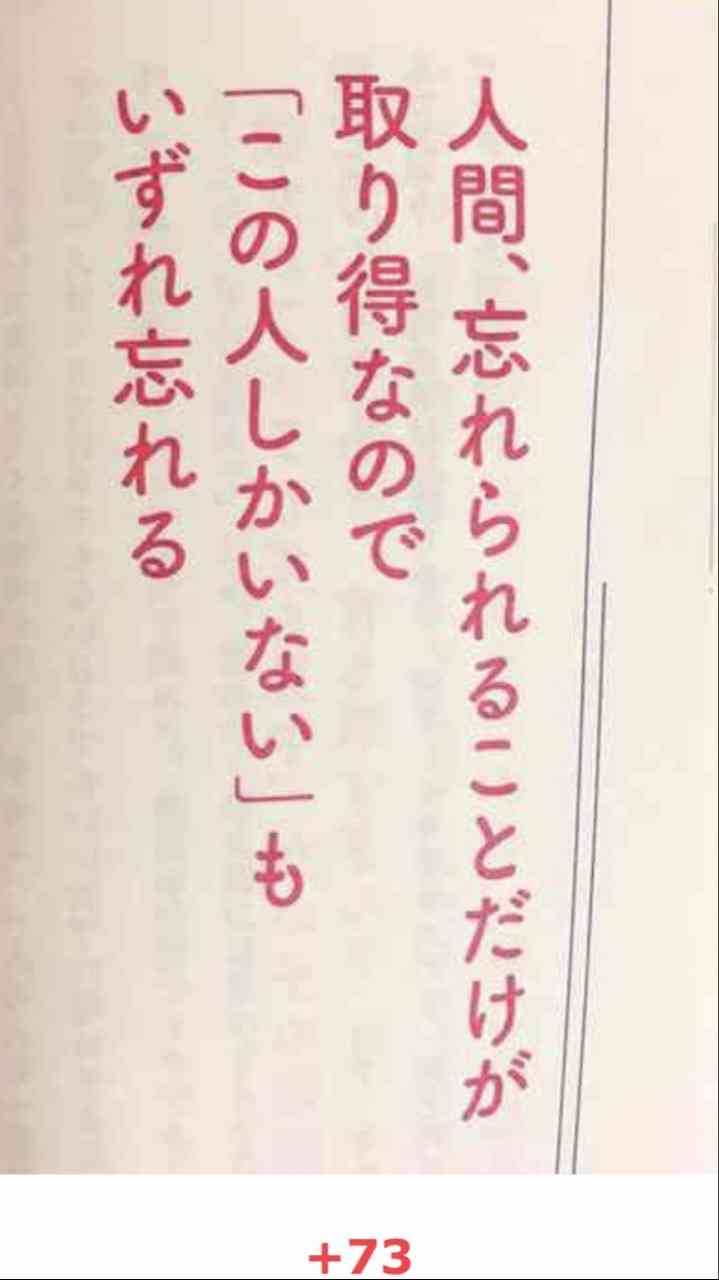 人間、忘れられることだけが
取り得なので
「この人しかいない」も
いずれ忘れる
+73